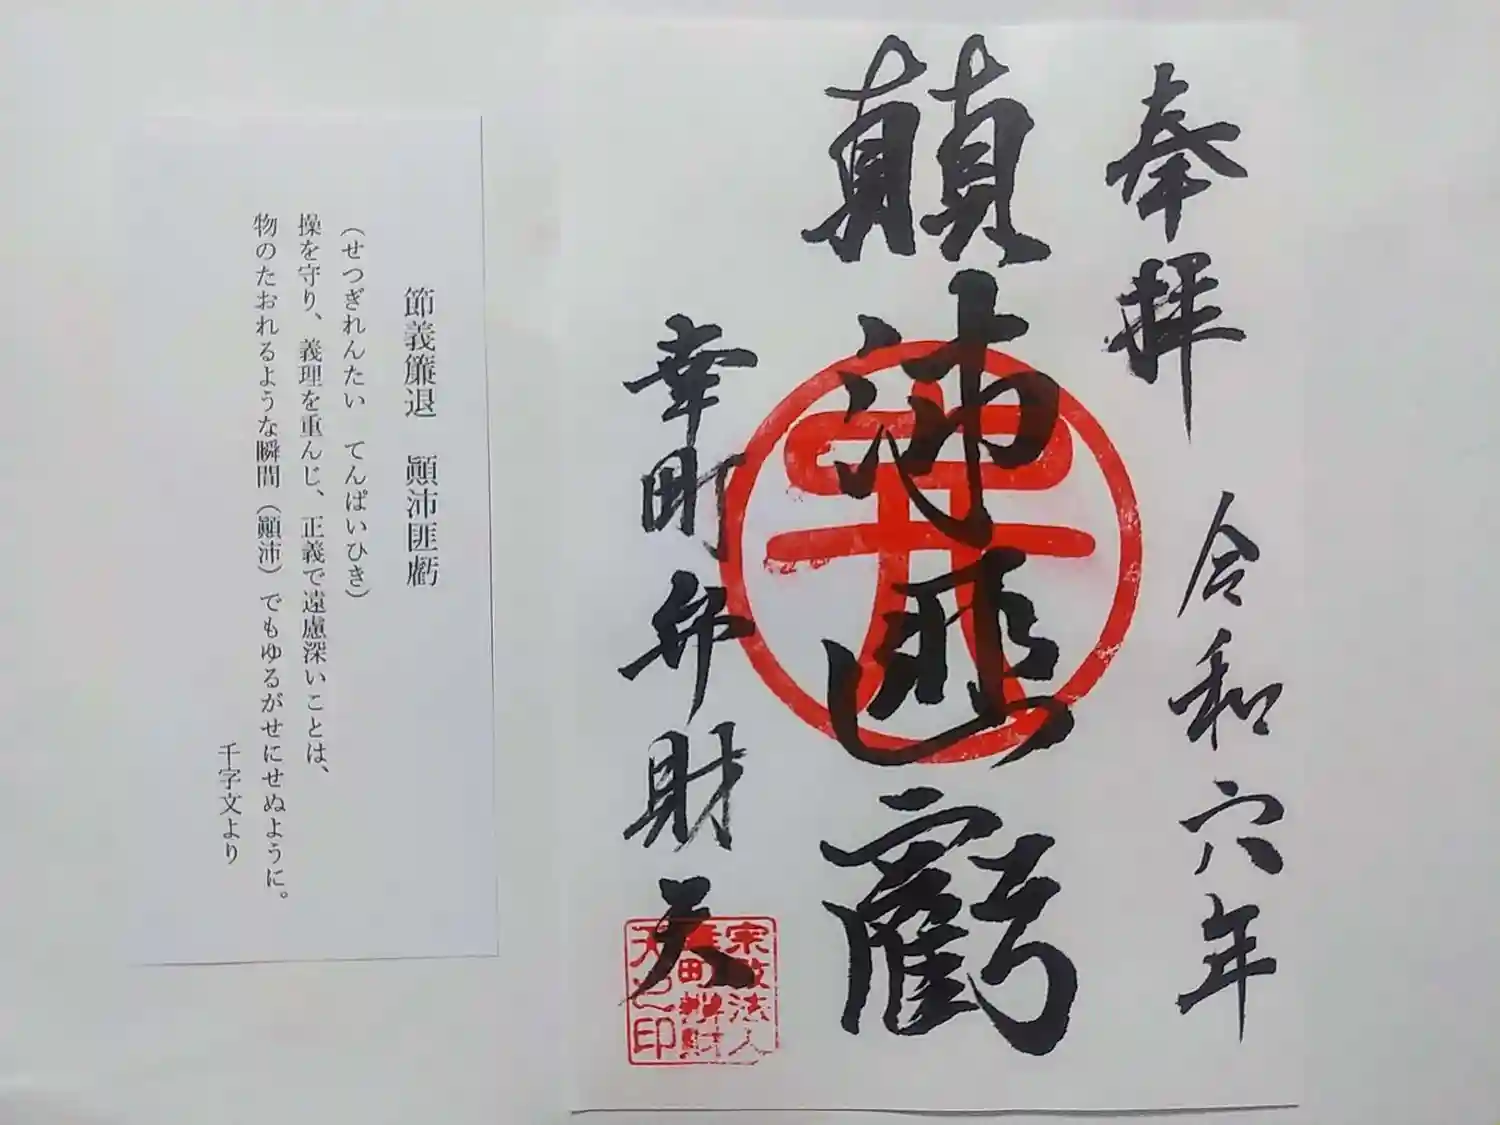 奉拝
令和六年
顚沛匪虧
幸町弁財天
宗教法人
幸町辨財
天之印
節義簾退 顚沛匪虧
(せつぎれんたい てんぱいひき)
操を守り、義理を重んじ、正義で遠慮深いことは、
物のたおれるような瞬間(顚沛)でもゆるがせにせぬように。
千字文より